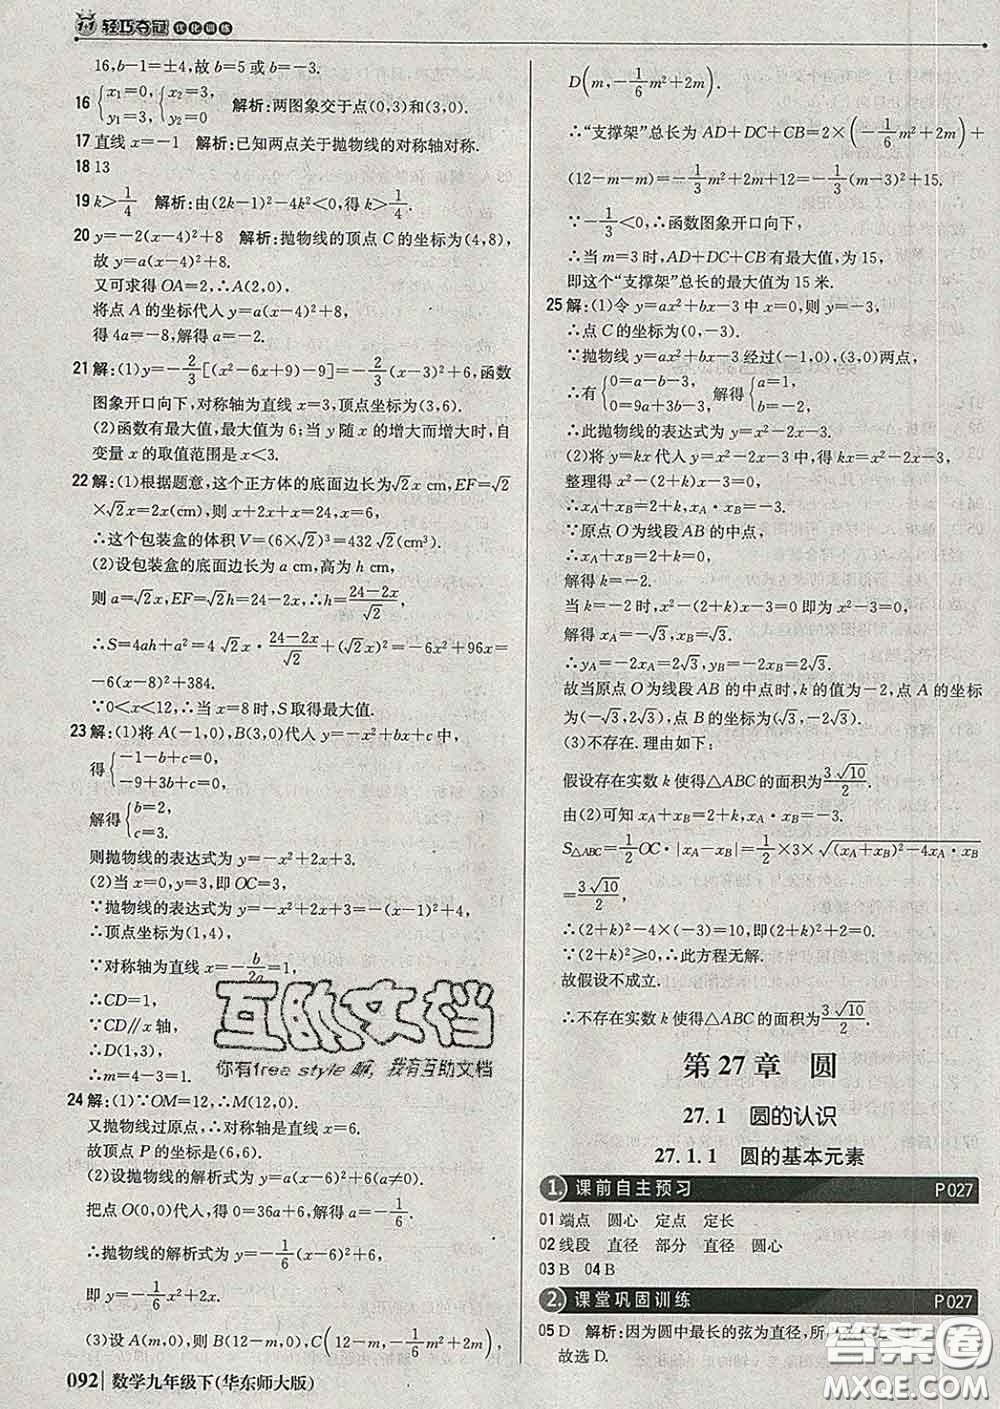 1+1 轻巧夺冠 优化训练
16,b-1=±4,故 b=5 或 b=-3.
16 {x₁=0, y₁=3, {x₂=3, y₂=0 解析:两图象交于点(0,3)和(3,0).
17 直线 x=-1 解析:已知两点关于抛物线的对称轴对称.
18 13
19 k>1/4 解析:由(2k-1)²-4k²<0,得 k>1/4.
20 y=-2(x-4)²+8 解析:抛物线的顶点 C 的坐标为(4,8),
故 y=a(x-4)²+8.
又可求得 OA=2,∴A(2,0).
将点 A 的坐标代入 y=a(x-4)²+8,
得 4a=-8,解得 a=-2.
21 解:(1)y=-2/3[(x²-6x+9)-9]=-2/3(x-3)²+6,函数
图象开口向下,对称轴为直线 x=3,顶点坐标为(3,6).
(2)函数有最大值,最大值为 6;当 y 随 x 的增大而增大时,自
变量 x 的取值范围是 x<3.
22 解:(1)根据题意,这个正方体的底面边长为√2x cm,EF=√2
×√2x=2x(cm),则 x+2x+x=24,x=6,
∴这个包装盒的体积 V=(6×√2)³=432√2(cm³).
(2)设包装盒的底面边长为 a cm,高为 h cm,
则 a=√2x,EF=√2h=24-2x,∴h=(24-2x)/√2,
∴S=4ah+a²=4√2x·(24-2x)/√2+(√2x)²=-6x²+96x=
-6(x-8)²+384.
∵0<x<12,∴当 x=8 时,S 取得最大值.
23 解:(1)将 A(-1,0),B(3,0)代入 y=-x²+bx+c 中,
得{-1-b+c=0, -9+3b+c=0,
解得{b=2, c=3.
则抛物线的表达式为 y=-x²+2x+3.
(2)当 x=0,y=3,即 OC=3,
∵抛物线的表达式为 y=-x²+2x+3=-(x-1)²+4,
∴顶点坐标为(1,4),
∵对称轴为直线 x=-b/2a=1,
∴CD=1,
∵CD∥x 轴,
∴D(1,3),
∴m=4-3=1.
24 解:(1)∵OM=12,∴M(12,0).
又抛物线过原点,∴对称轴是直线 x=6.
故顶点 P 的坐标是(6,6).
(2)设抛物线的解析式为 y=a(x-6)²+6,
把点 O(0,0)代入,得 0=36a+6,a=-1/6,
∴抛物线的解析式为 y=-1/6(x-6)²+6,
即 y=-1/6x²+2x.
(3)设 A(m,0),则 B(12-m,0),C(12-m,-1/6m²+2m),
092 数学九年级下(华东师大版)
D(m,-1/6m²+2m).
∴“支撑架”总长为 AD+DC+CB=2×(-1/6m²+2m)+
(12-m-m)=-1/3m²+2m+12=-1/3(m-3)²+15.
∵-1/3<0,∴函数图象开口向下,
∴当 m=3 时,AD+DC+CB 有最大值,为 15,
即这个“支撑架”总长的最大值为 15 米.
25 解:(1)令 y=ax²+bx-3 中 x=0,则 y=-3,
∴点 C 的坐标为(0,-3).
∵抛物线 y=ax²+bx-3 经过(-1,0),(3,0)两点,
∴有{0=a-b-3, 0=9a+3b-3, 解得{a=1, b=-2.
∴此抛物线的表达式为 y=x²-2x-3.
(2)将 y=kx 代入 y=x²-2x-3,得 kx=x²-2x-3,
整理得 x²-(2+k)x-3=0,
∴x_A+x_B=2+k,x_A·x_B=-3.
∵原点 O 为线段 AB 的中点,
∴x_A+x_B=2+k=0,
解得 k=-2.
当 k=-2 时,x²-(2+k)x-3=0 即为 x²-3=0,
解得 x_A=-√3,x_B=√3.
∴y_A=-2x_A=2√3,y_B=-2x_B=-2√3.
故当原点 O 为线段 AB 的中点时,k 的值为-2,点 A 的坐标
为(-√3,2√3),点 B 的坐标为(√3,-2√3).
(3)不存在.理由如下:
假设存在实数 k 使得△ABC 的面积为3√10/2.
由(2)可知 x_A+x_B=2+k,x_A·x_B=-3,
S△ABC=1/2OC·|x_A-x_B|=1/2×3×√((x_A+x_B)²-4x_A·x_B)
=3√10/2,
∴(2+k)²-4×(-3)=10,即(2+k)²=-2.
∵(2+k)²≥0,∴此方程无解.
故假设不成立.
∴不存在实数 k 使得△ABC 的面积为3√10/2.
第 27 章 圆
27.1 圆的认识
27.1.1 圆的基本元素
1. 课前自主预习 P027
01 端点 圆心 定点 定长
02 线段 直径 部分 直径 圆心
03 B 04 B
2. 课堂巩固训练 P027
05 D 解析:因为圆中最长的弦为直径,所
故选 D.
互助文档
你有free style嘛,我有互助文档
答案圈